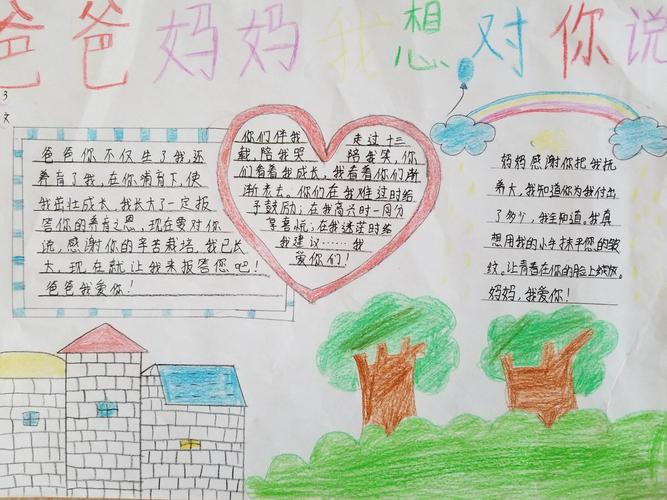 爸爸妈妈我想对你说
3
文
爸爸你不仅生了我,还
养育了我,在你哺育下,使
我茁壮成长,我长大了一定报
答你的养育之恩,现在要对你
说,感谢你的辛苦栽培,我已长
大,现在就让我来报答您吧!
爸爸我爱你!
你们伴我 走过十三
载,陪我哭 陪我笑,你
们看着我成长,我看着你们渐
渐老去。你们在我难过时给
予鼓励;在我高兴时一同分
享喜悦;在我迷茫时给
我建议……我
爱你们!
妈妈感谢你把我抚
养大,我知道你为我付出
了多少,我全知道。我真
想用我的小手抚平您的皱
纹。让青春在你的脸上绽放。
妈妈,我爱你!